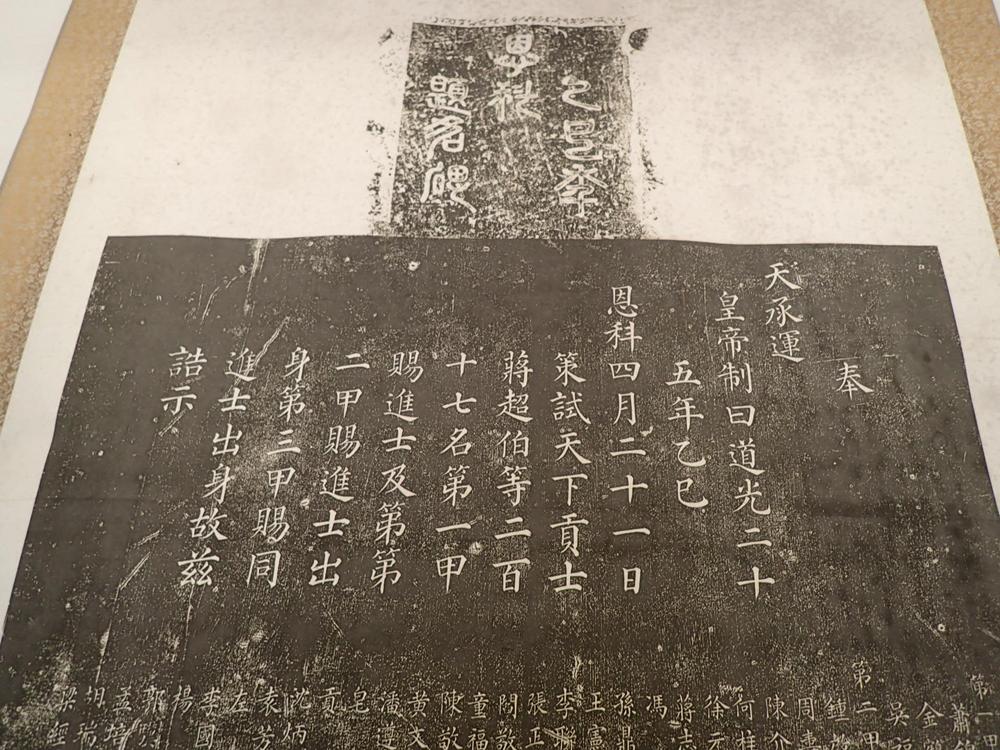 乙巳
恩科
題名碑
奉
天承運
皇帝制曰道光二十
五年乙巳
恩科四月二十一日
策試天下貢士
蔣超伯等二百
十七名第一甲
賜進士及第第
二甲賜進士出
身第三甲賜同
進士出身故茲
誥示
第一甲
蕭
金
吳
第二甲
鍾
周
陳介
何桂
徐元
蔣志
馮
孫鼎
王憲
李聯
張正
閻敬
童福
陳敬
黃文
潘遵
皂
貢
沈炳
袁芳
左
李國
楊
孟培
胡瑞
梁經